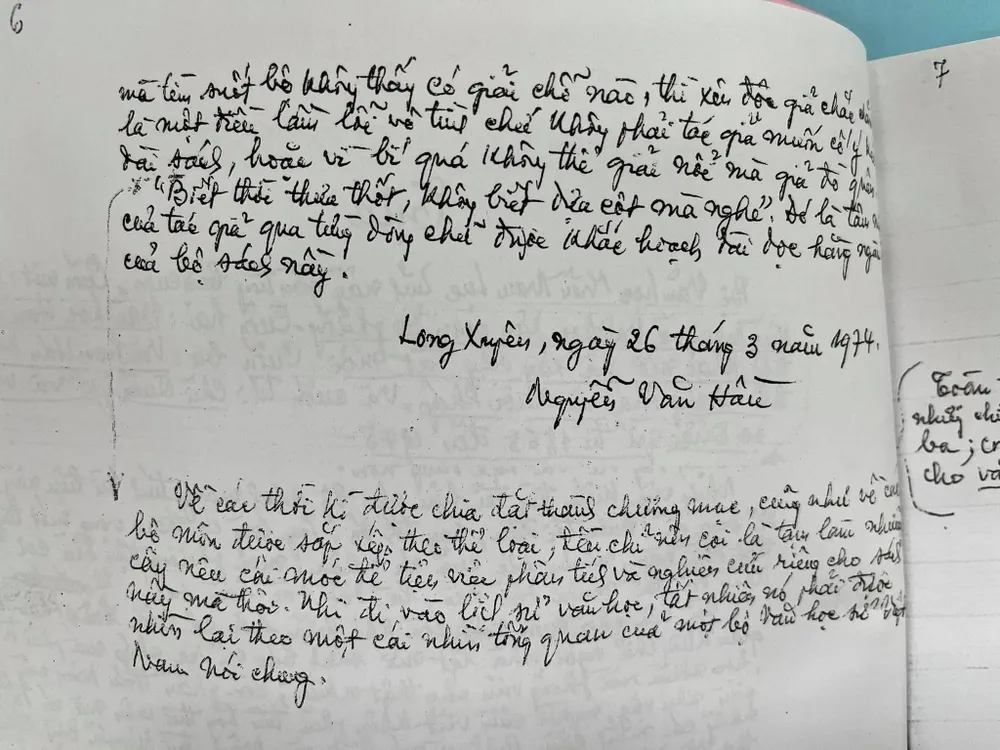 6
mà tìm suốt bộ không thấy có giải chỗ nào, thì xin độc giả chắc
là một điều lầm lỗi về tiếng chứ không phải tác giả muốn cố ý
dài sách, hoặc vì bí quá không thể giải nổi mà giả đò quên
"Biết thời thưa thốt, không biết dựa cột mà nghe". Đó là
của tác giả qua từng dòng chữ được khắc hoạch dài dọc hằng
của bộ sách này.
Long Xuyên, ngày 26 tháng 3 năm 1974.
Nguyễn Văn Hầu
Về các thời kì được chia đặt thành chương mục, cũng như về các
bộ môn được sắp xếp theo thể loại, đều chỉ nên coi là tạm làm những
cây nêu cái mốc để tiện việc phân tích và nghiên cứu riêng cho sách
này mà thôi. Khi đi vào lịch sử văn học, tất nhiên nó phải được
nhìn lại theo một cái nhìn tổng quan của một bộ Văn học sử Việt
Nam nói chung.
7
Toàn
những
ba;
cho